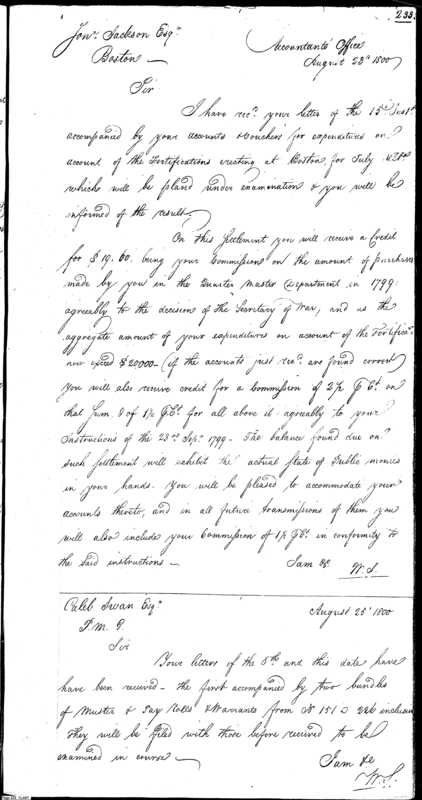 233.
Jonn. Jackson Esqr.
Accountants Office
Boston —
August 23d 1800
Sir
I have recd. your letter of the 15th Inst.
accompanied by your accounts & Vouchers for expenditures on
account of the Fortifications erecting at Boston, for July
which will be placed under examination & you will be
informed of the result.
On this Settlement you will receive a Credit
for $19.60. being your Commission on the amount of purchases
made by you in the Quarter Master Department in 1799:
agreeably to the decision of the Secretary of War, and as the
aggregate amount of your expenditures on account of the Fortificans.
now exceed $20000 — (if the accounts just recd. are found correct)
you will also receive credit for a Commission of 2 P Ct. on
that Sum. & of 1 P Ct. for all above it: agreeably to your
instructions of the 23rd Sept. 1799 - The balance found due on
such settlement will exhibit the actual State of Public monies
in your hands. You will be pleased to accommodate your
accounts thereto, and in all future transmissions of them you
will also include your Commission of 1 P Ct. in conformity to
the said instructions —
I am &c
W.S.
Caleb Swan Esqr.
August 25th 1800
P.M.G.
Sir
Your letters of the 8th and this date have
have been received - the first accompanied by two bundles
of Muster & Pay Rolls & Warrants from N 151 226 inclusive
They will be filed with those before received to be
examined in course —
I am &c
W.S.